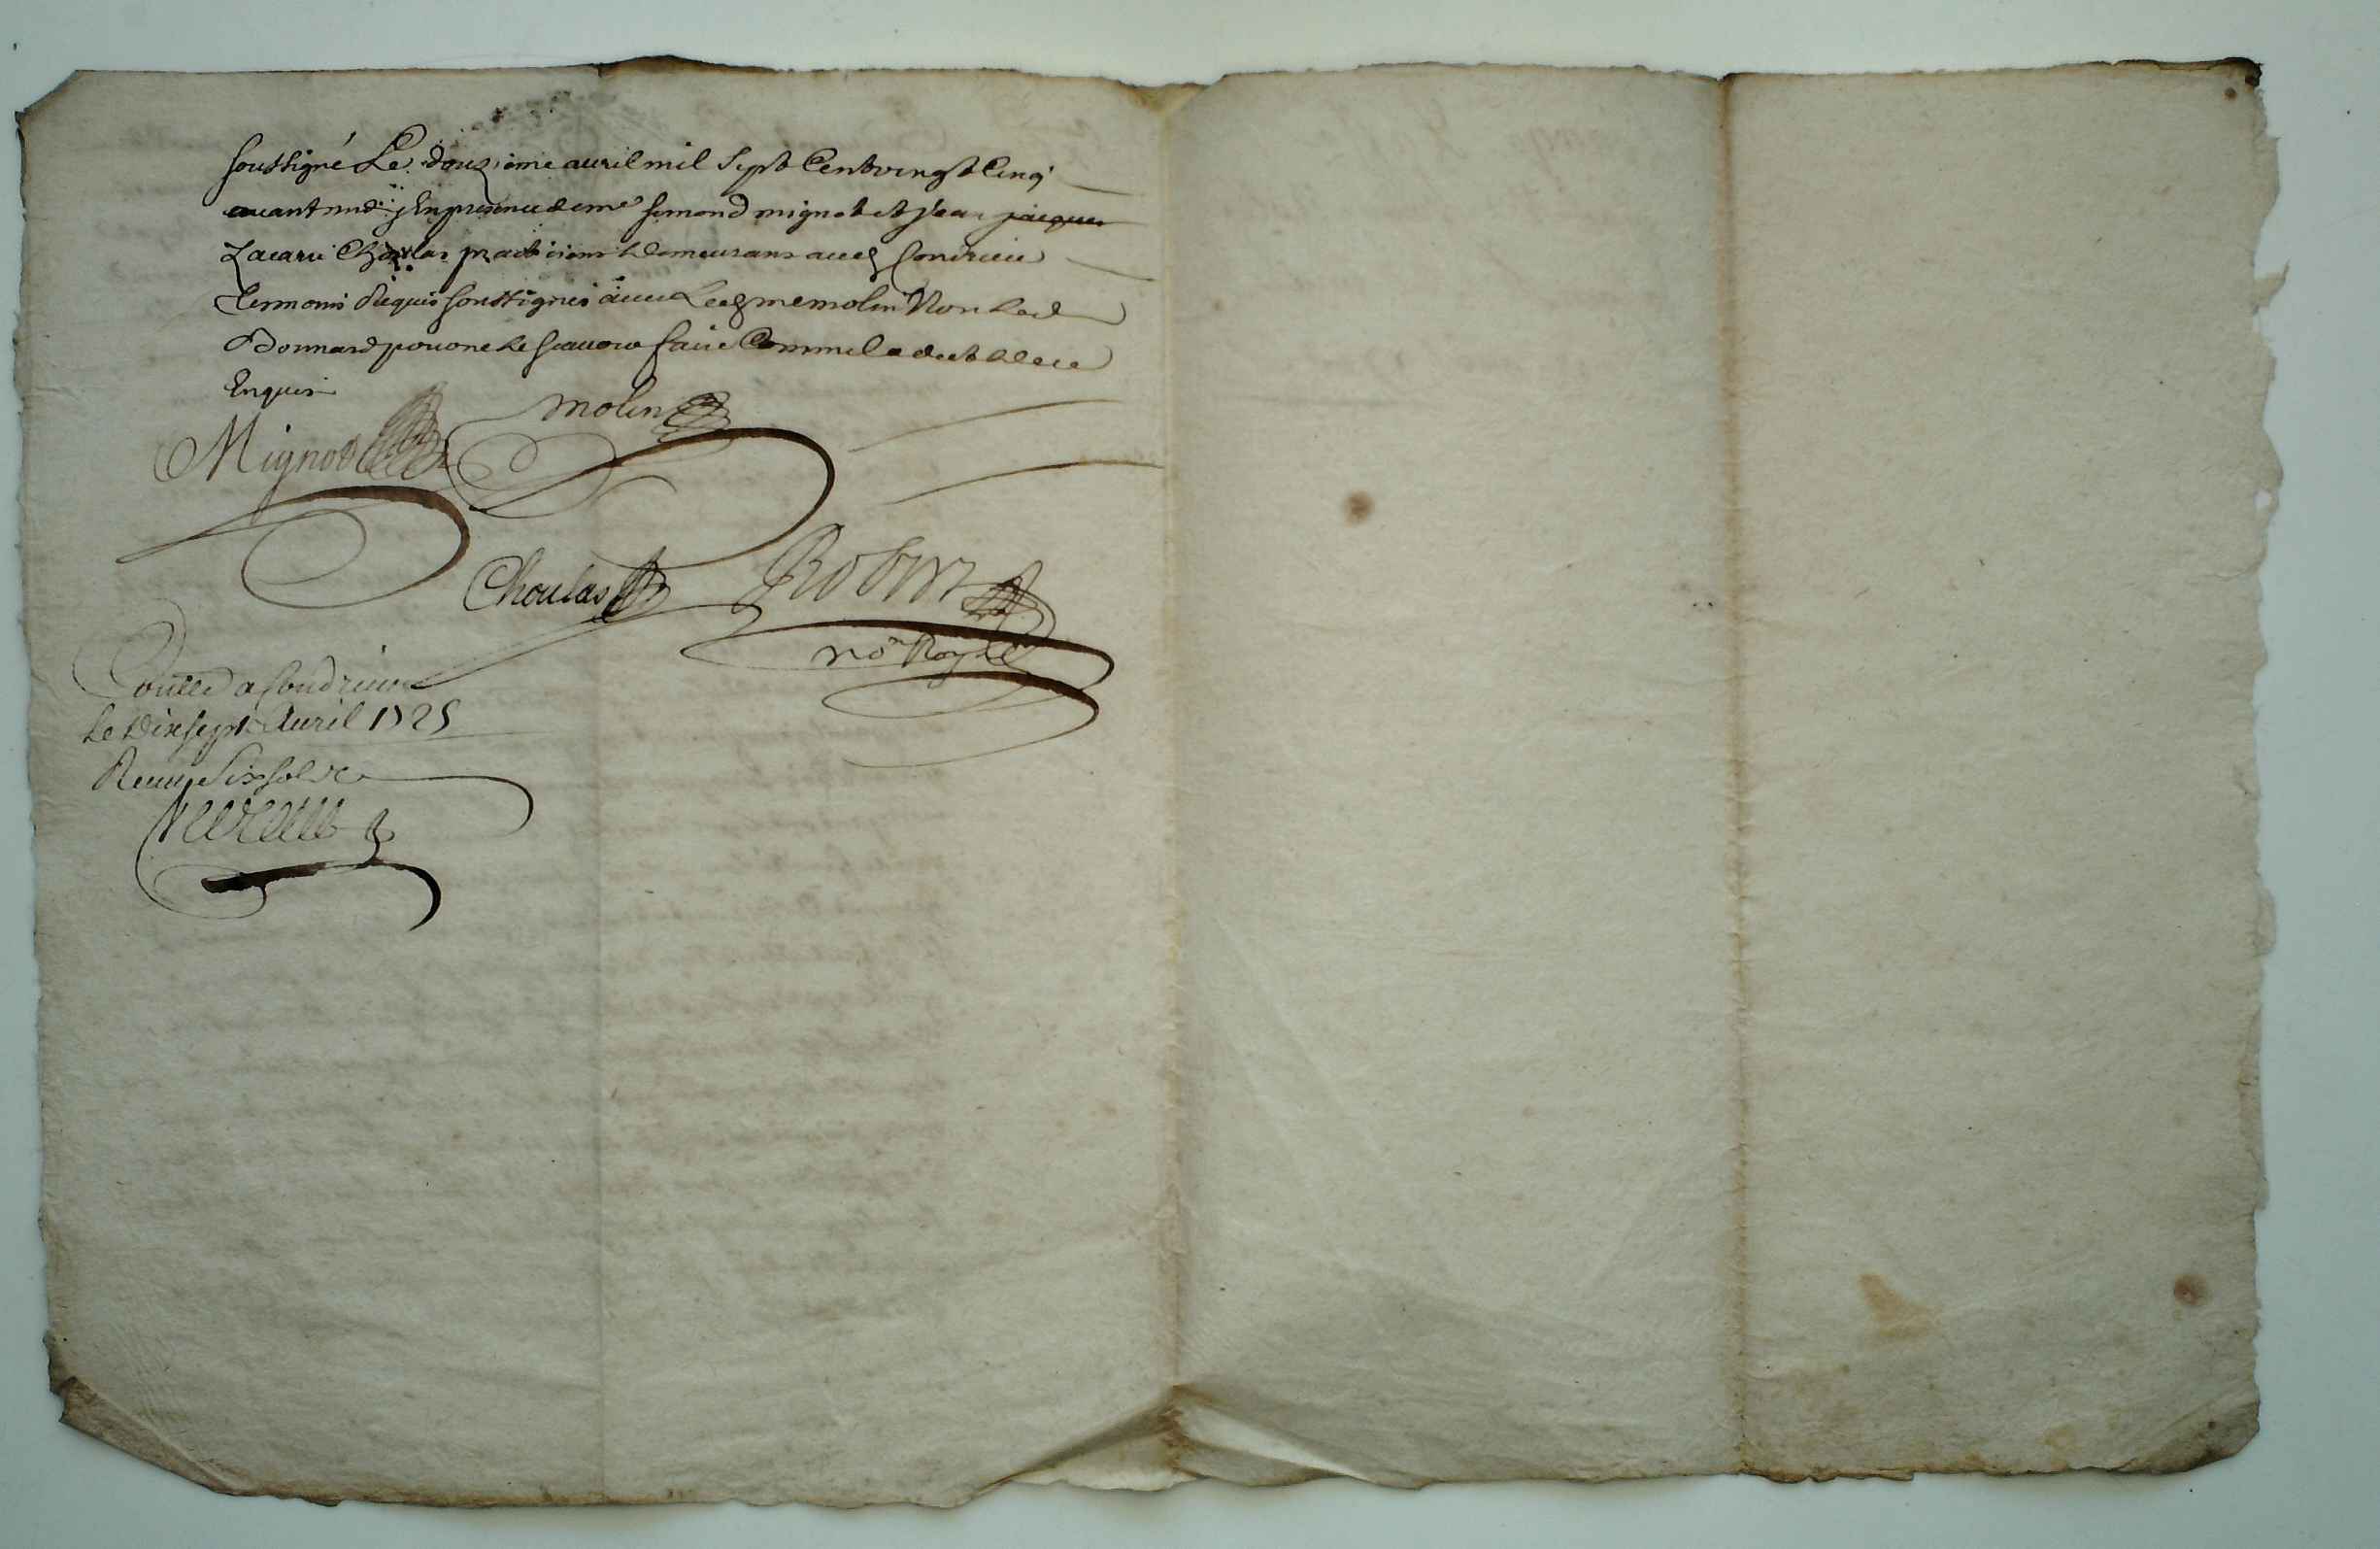 soussigné Le douzieme auril mil Sept Cent vingt Cinq
auant midy En presence de me simond mignot et Jean jacques
Zacarie Choulas praticiens demeurans aud Condrieu
Temoins Requis soussignés auec Led me molin Non Led
Bonnard pour ne le scauoir faire Comme il a dit de ce
Enquis
molin
Mignot
Choulas
Robin
no Royal
Contlé a Condrieu
Le Dix sept Auril 1725
Receu Six sols